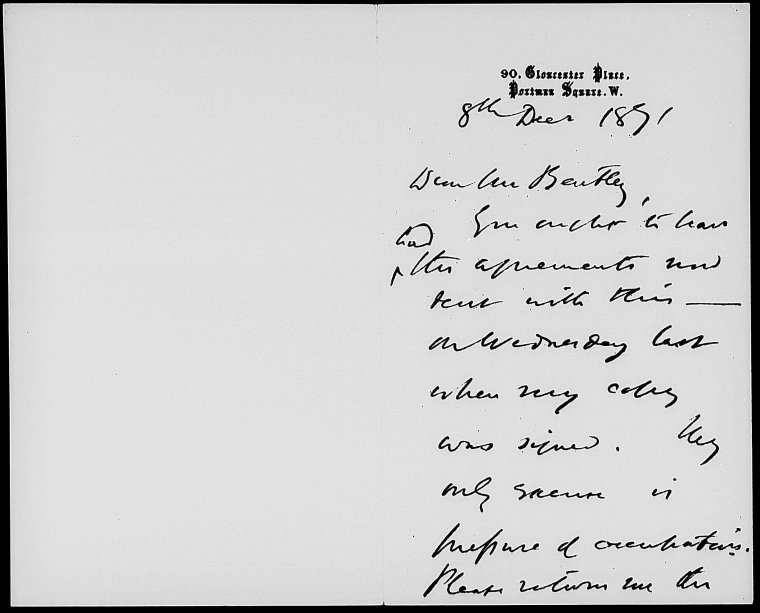 90, Gloucester Place,
Portman Square. W.
8th Decr 1871
Dear Mr Bentley,
You ought to have
had
the agreements now
sent with this —
on Wednesday last
when my copy
was signed. My
only excuse is
pressure of occupations.
Please return me the